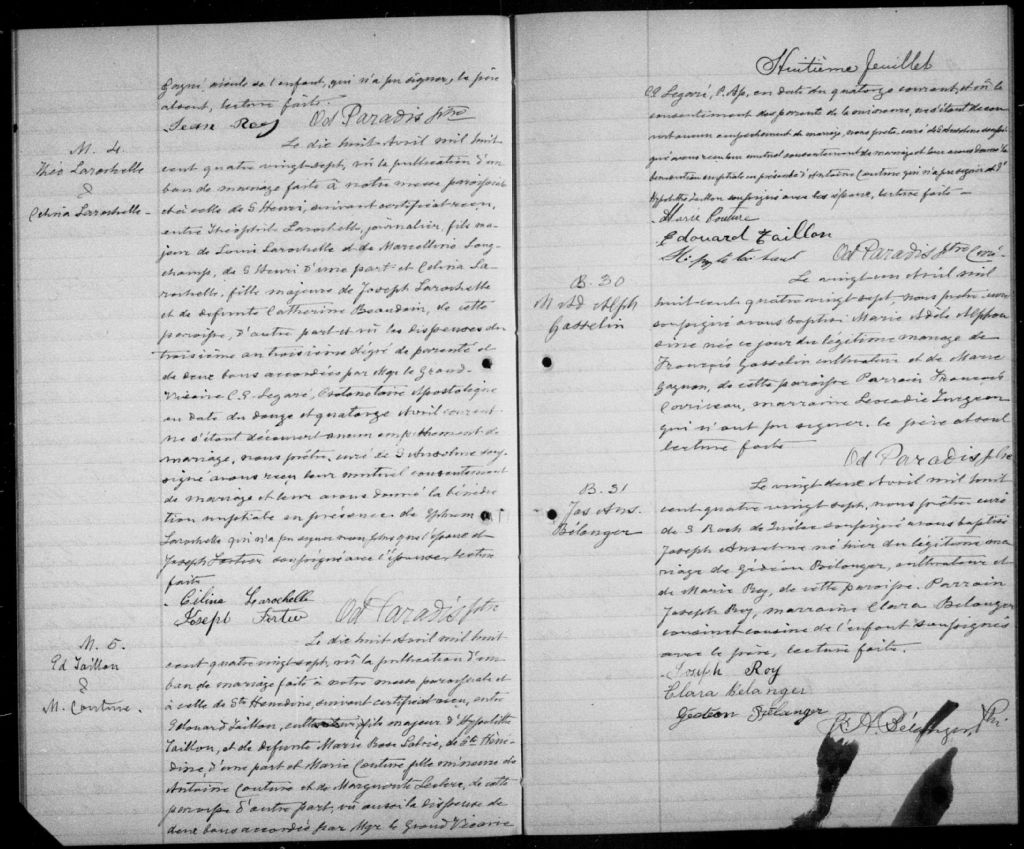 Gagné, aieule de l'enfant, qui n'a pu signer, le père
absent, lecture faite.
Jean Roy Od Paradis ptre
M. 4
Théo Larochelle
&
Celina Larochelle -
Le dix huit Avril mil huit
cent quatre vingt sept, vû la publication d'un
ban de mariage faite à notre messe paroissiale
et à celle de S Henri, suivant certificat reçu,
entre Théophile Larochelle, journalier, fils ma-
jeur de Louis Larochelle et de Marcelline Long-
champ, de S Henri d'une part et Celina La-
rochelle, fille majeure de Joseph Larochelle
et de defunte Catherine Beaudoin, de cette
paroisse, d'autre part et vû les dispenses du
troisième au troisième dégré de parenté et
de deux bans accordées par Mgr le Grand-
Vicaire C. E. Legaré, Protonotaire Apostolique
en date du douze et quatorze Avril courant
ne s'étant découvert aucun empêchement de
mariage, nous prêtre, curé de S Anselme sous-
signé avons reçu leur mutuel consentement
de mariage et leur avons donné la bénédic
tion nuptiale en présence de Ephrem
Larochelle qui n'a pu signer non plus que l'époux et
Joseph Fortier soussigné avec l'épouse, lecture
faite
Célina Larochelle
Joseph Fortier Od Paradis ptre
M. 5.
Ed Taillon
&
M. Couture.
Le dix huit Avril mil huit
cent quatre vingt sept, vû la publication d'un
ban de mariage faite à notre messe paroissiale et
à celle de Ste Henedine, suivant certificat reçu, entre
Edouard Taillon, cultivateur fils majeur d'Hypolitte
Taillon, et de defunte Marie Rose Labrie, de Ste Héné-
dine, d'une part et Marie Couture fille mineure de
Antoine Couture et de Marguerite Leclerc, de cette
paroisse d'autre part, vû aussi la dispense de
deux bans accordée par Mgr le Grand Vicaire
Huitième feuillet
CE Legaré, P. Ap, en date du quatorze courant, et vû le
consentement des parents de la mineure, ne s'étant decou
vert aucun empêchement de mariage, nous prêtre, curé de S Anselme soussi
gné avons reçu leur mutuel consentement de mariage et leur avons donné la
bénédiction nuptiale en présence d'Antoine Couture qui n'a pu signer et d'
Hypolitte Taillon soussignés avec les époux, lecture faite -
Marie Couture
Edouard Taillon
Od Paradis ptre Curé-
B. 30
M Ad Alph
Gosselin
Le vingt un Avril mil
huit cent quatre vingt sept, nous prêtre curé
soussigné avons baptisé Marie Adèle Alphon
sine née ce jour du légitime mariage de
François Gosselin cultivateur et de Marie
Gagnon, de cette paroisse Parrain François
Corriveau, marraine Leocadie Turgeon
qui n'ont pu signer. le père absent
lecture faite
Od Paradis ptre
B. 31
Jos Ans.
Bélanger
Le vingt deux Avril mil huit
cent quatre vingt sept, nous prêtre curé
de S Roch de Québec soussigné avons baptisé
Joseph Anselme né hier du légitime ma
riage de Gidéon Bélanger, cultivateur et
de Marie Roy, de cette paroisse. Parrain
Joseph Roy, marraine Clara Bélanger
cousin et cousine de l'enfant soussignés
avec le père, lecture faite.
Joseph Roy
Clara Bélanger
Gedeon Bélanger
F. A. Bélanger, Ptr.